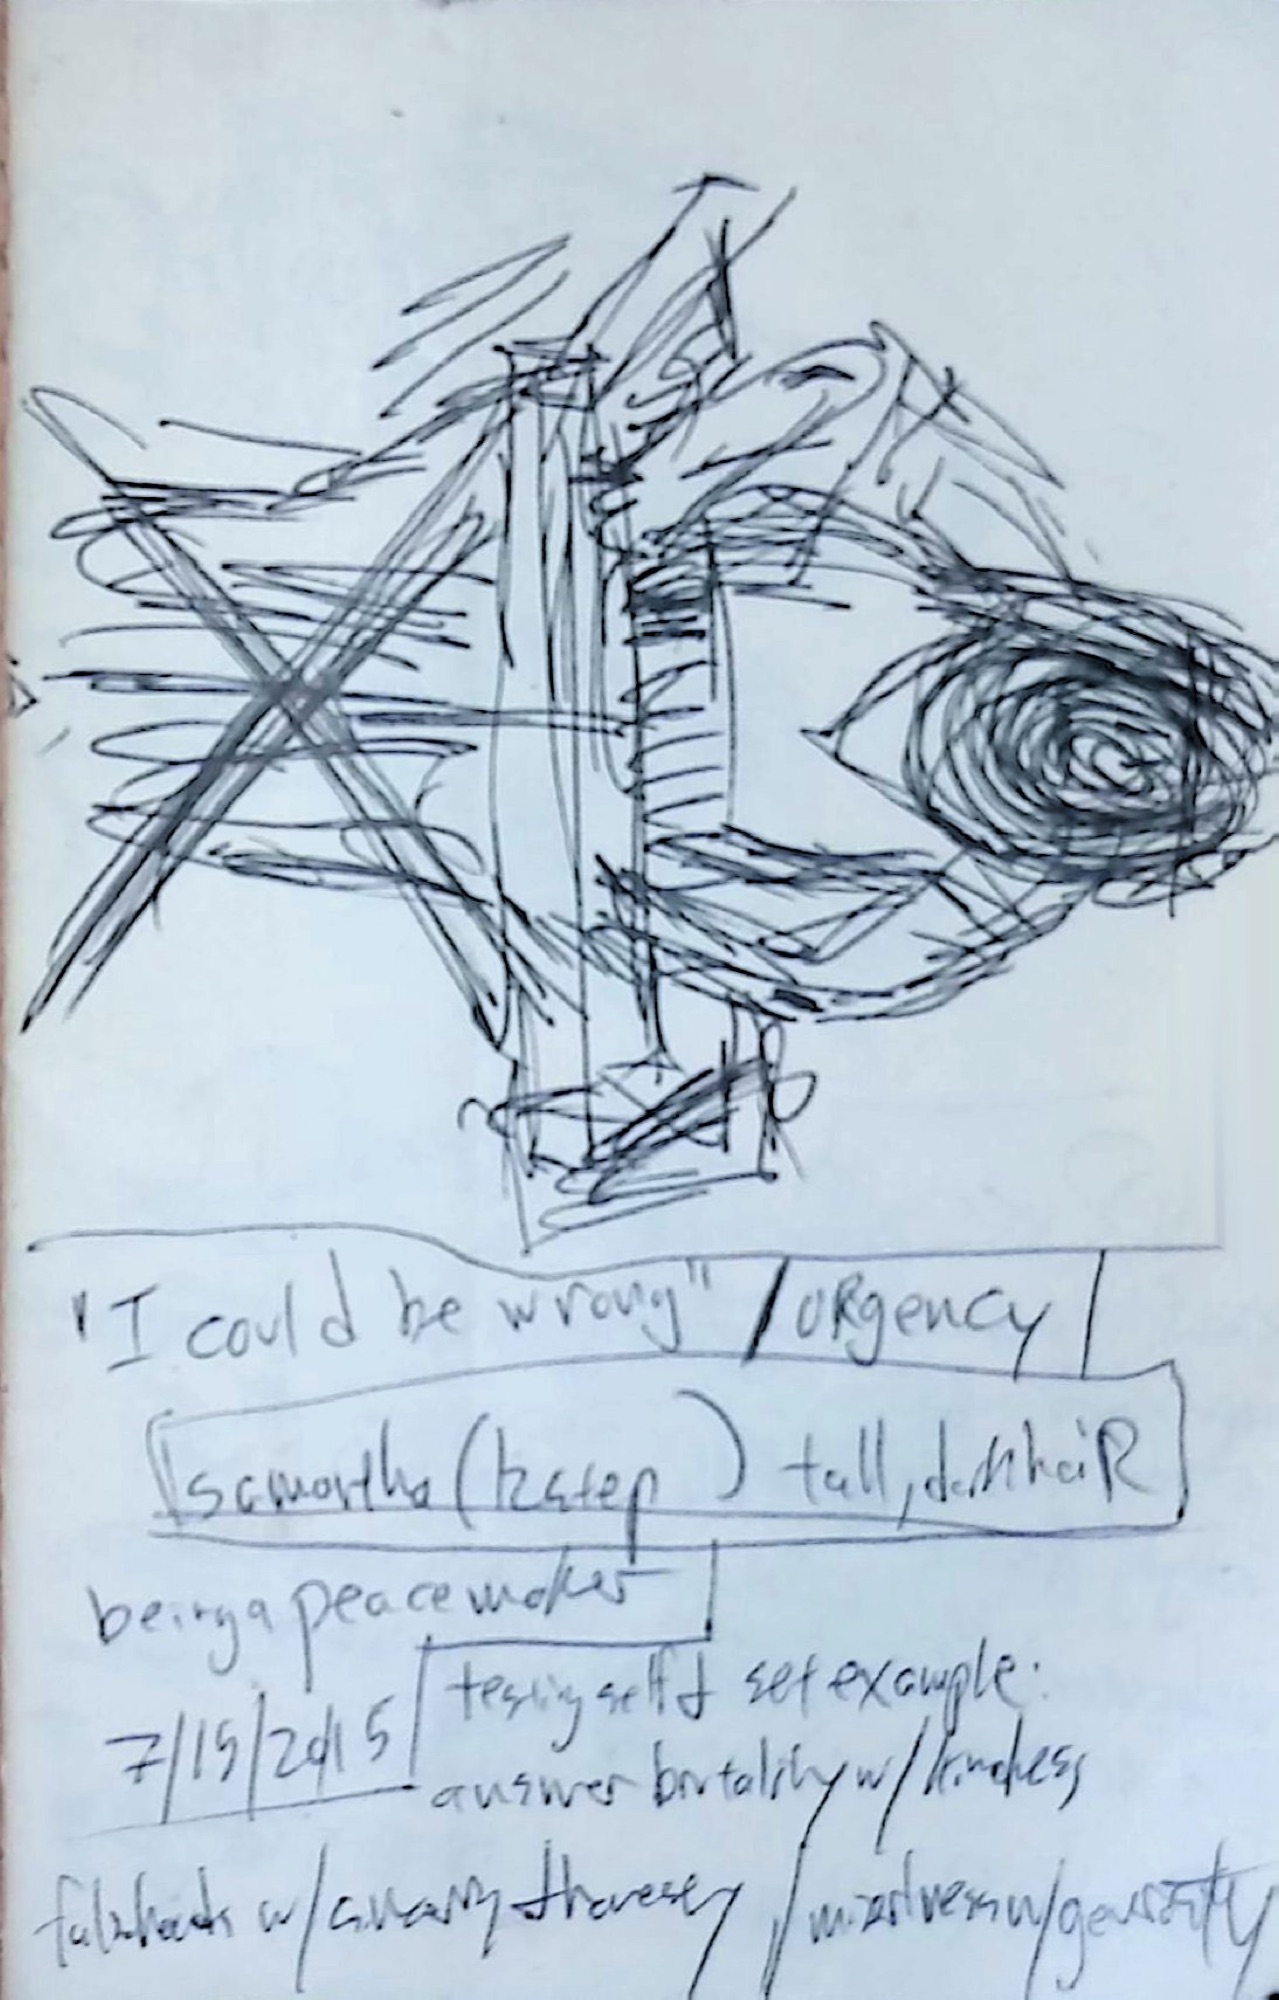 "I could be wrong" / uRgency
samantha ( ) tall, darkhaiR
being a peacemaker
testing self & set example:
7/15/2015
answer brutality w/ kindness
falsehoods w/ & honesty / miserliness w/ generosity